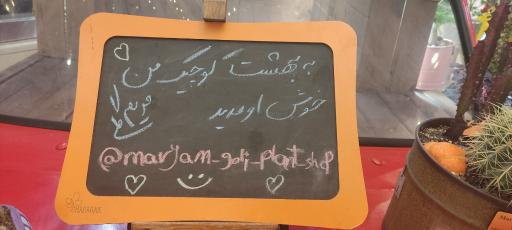 به بهشت کوچیک من
خوش اومدید
مریم گلی
@maryam_goli_plant_shop